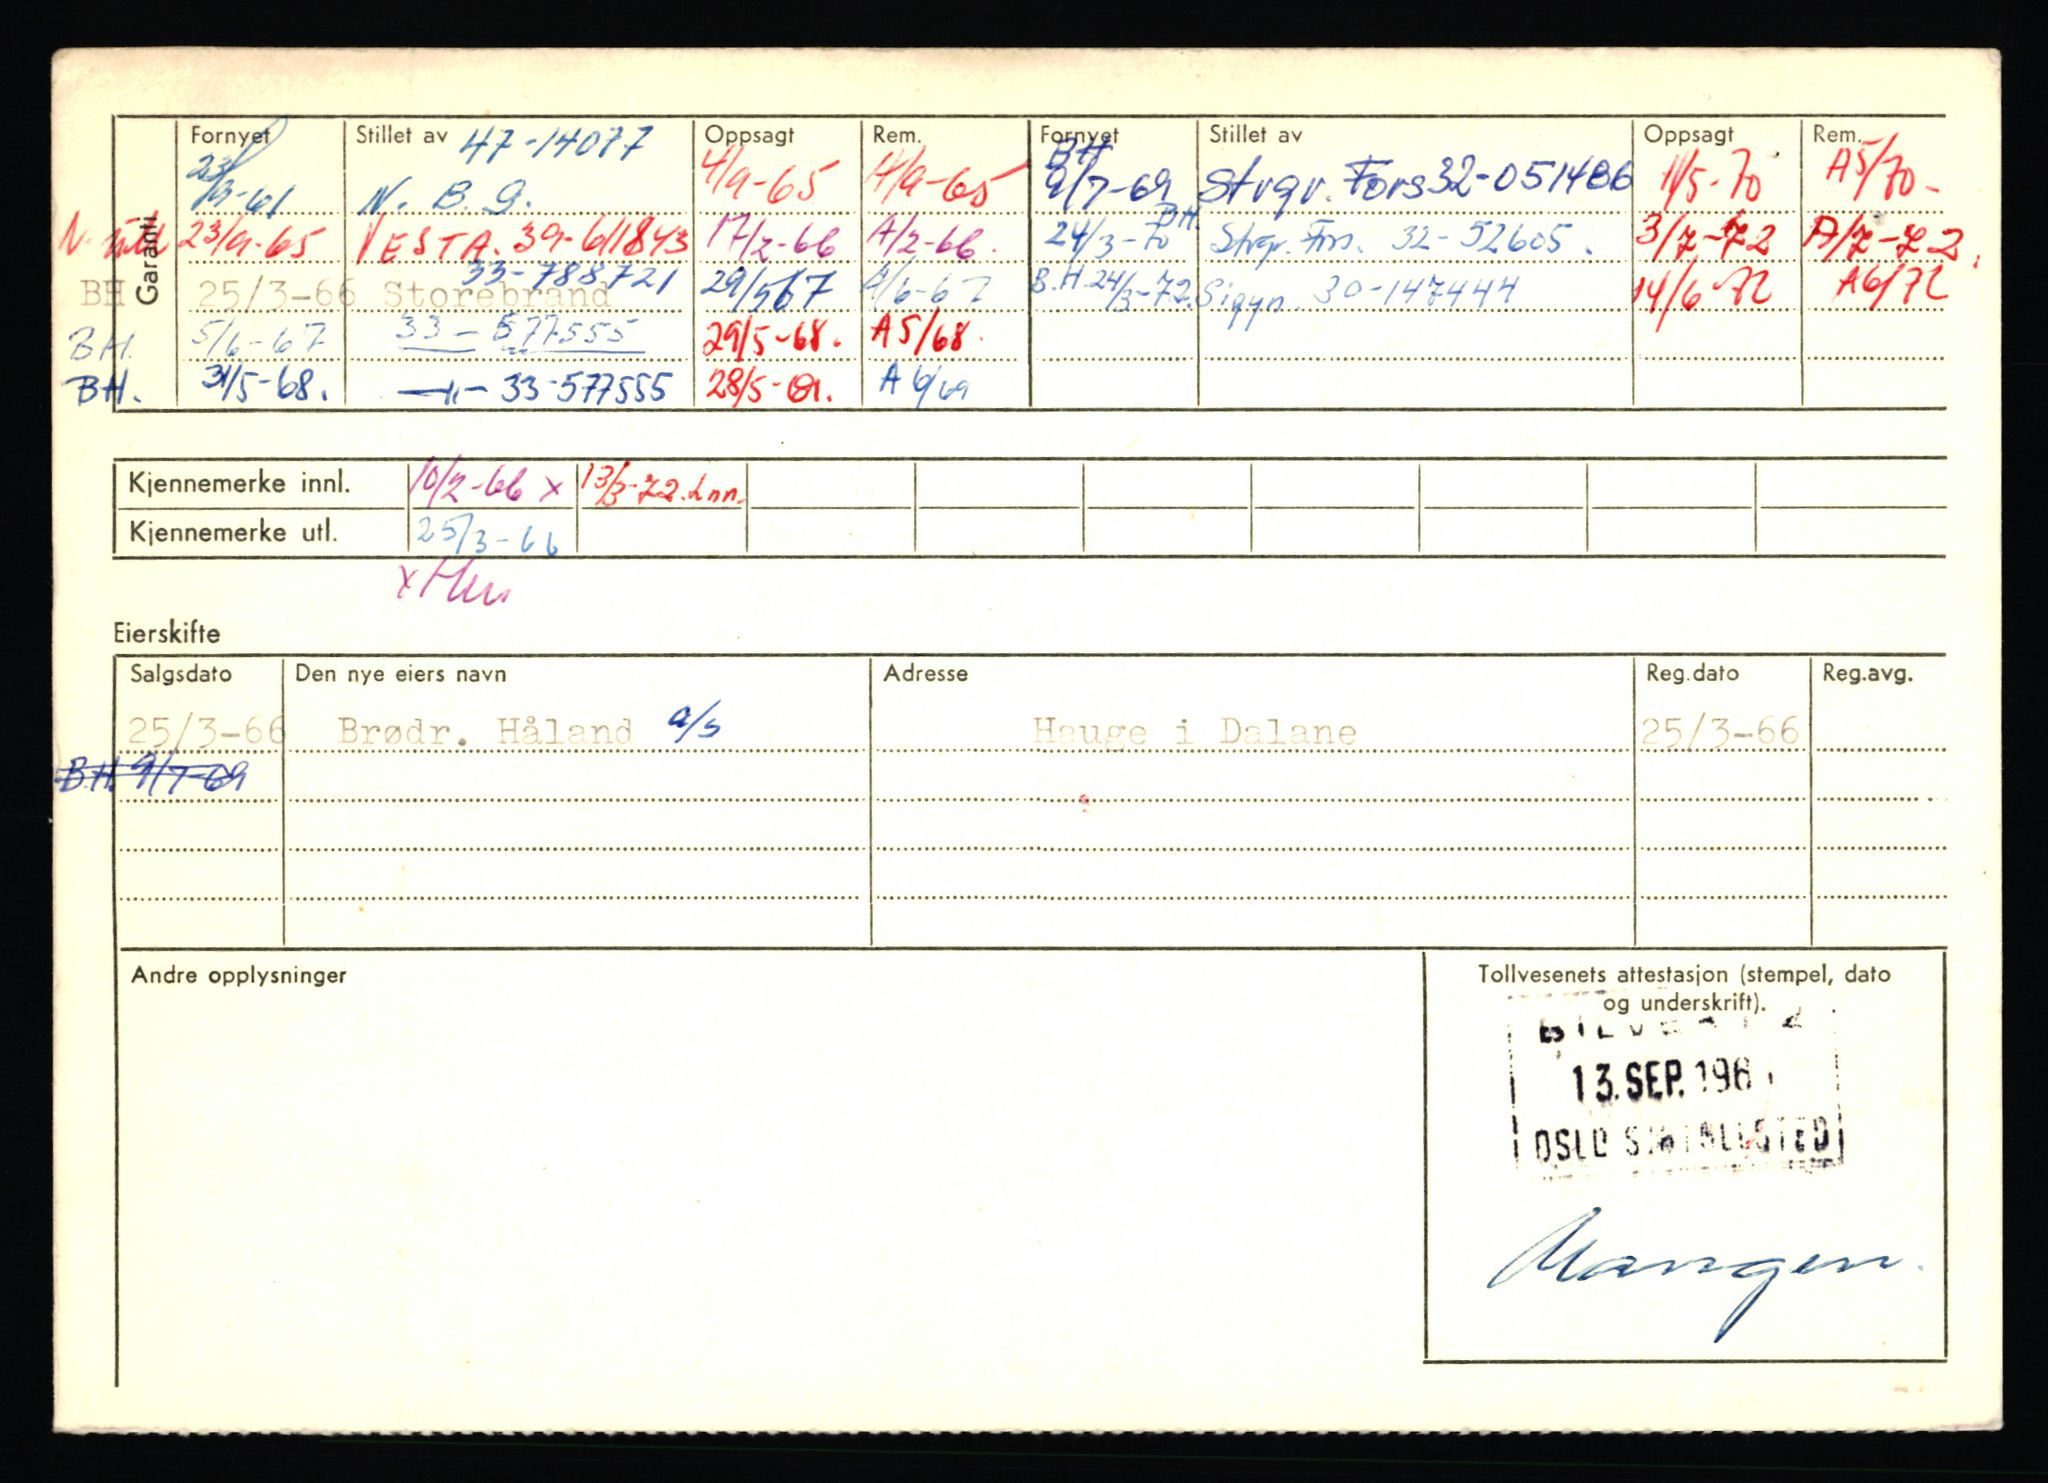 Garanti
Fornyet Stillet av Oppsagt Rem. Fornyet Stillet av Oppsagt Rem.
47-14077
N. B. G. 4/9-65 4/9-65 BH 9/7-69 Strgr. Fors 32-051486 11/5-70 A5/70-
23/9-65 VESTA. 39-611843 17/2-66 A/2-66. 24/3-70 BH. Strgr. Frs. 32-52605. 3/7-72 A/7-72.
33-788721
BH 25/3-66 Storebrand 29/5 67 A/6-67 B.H. 24/3-72. Sigyn. 30-147444 14/6-72 A6/72
BH. 5/6-67 33-577555 29/5-68. A5/68.
BH. 31/5-68. —"— 33-577555 28/5-69. A6/69
Kjennemerke innl. 10/2-66 x 13/3-72. Inn.
Kjennemerke utl. 25/3-66
Eierskifte
Salgsdato Den nye eiers navn Adresse Reg.dato Reg.avg.
25/3-66 Brødr. Håland a/s Hauge i Dalane 25/3-66
BH. 9/7-69
Andre opplysninger
Tollvesenets attestasjon (stempel, dato
og underskrift).
13. SEP. 196
OSLO